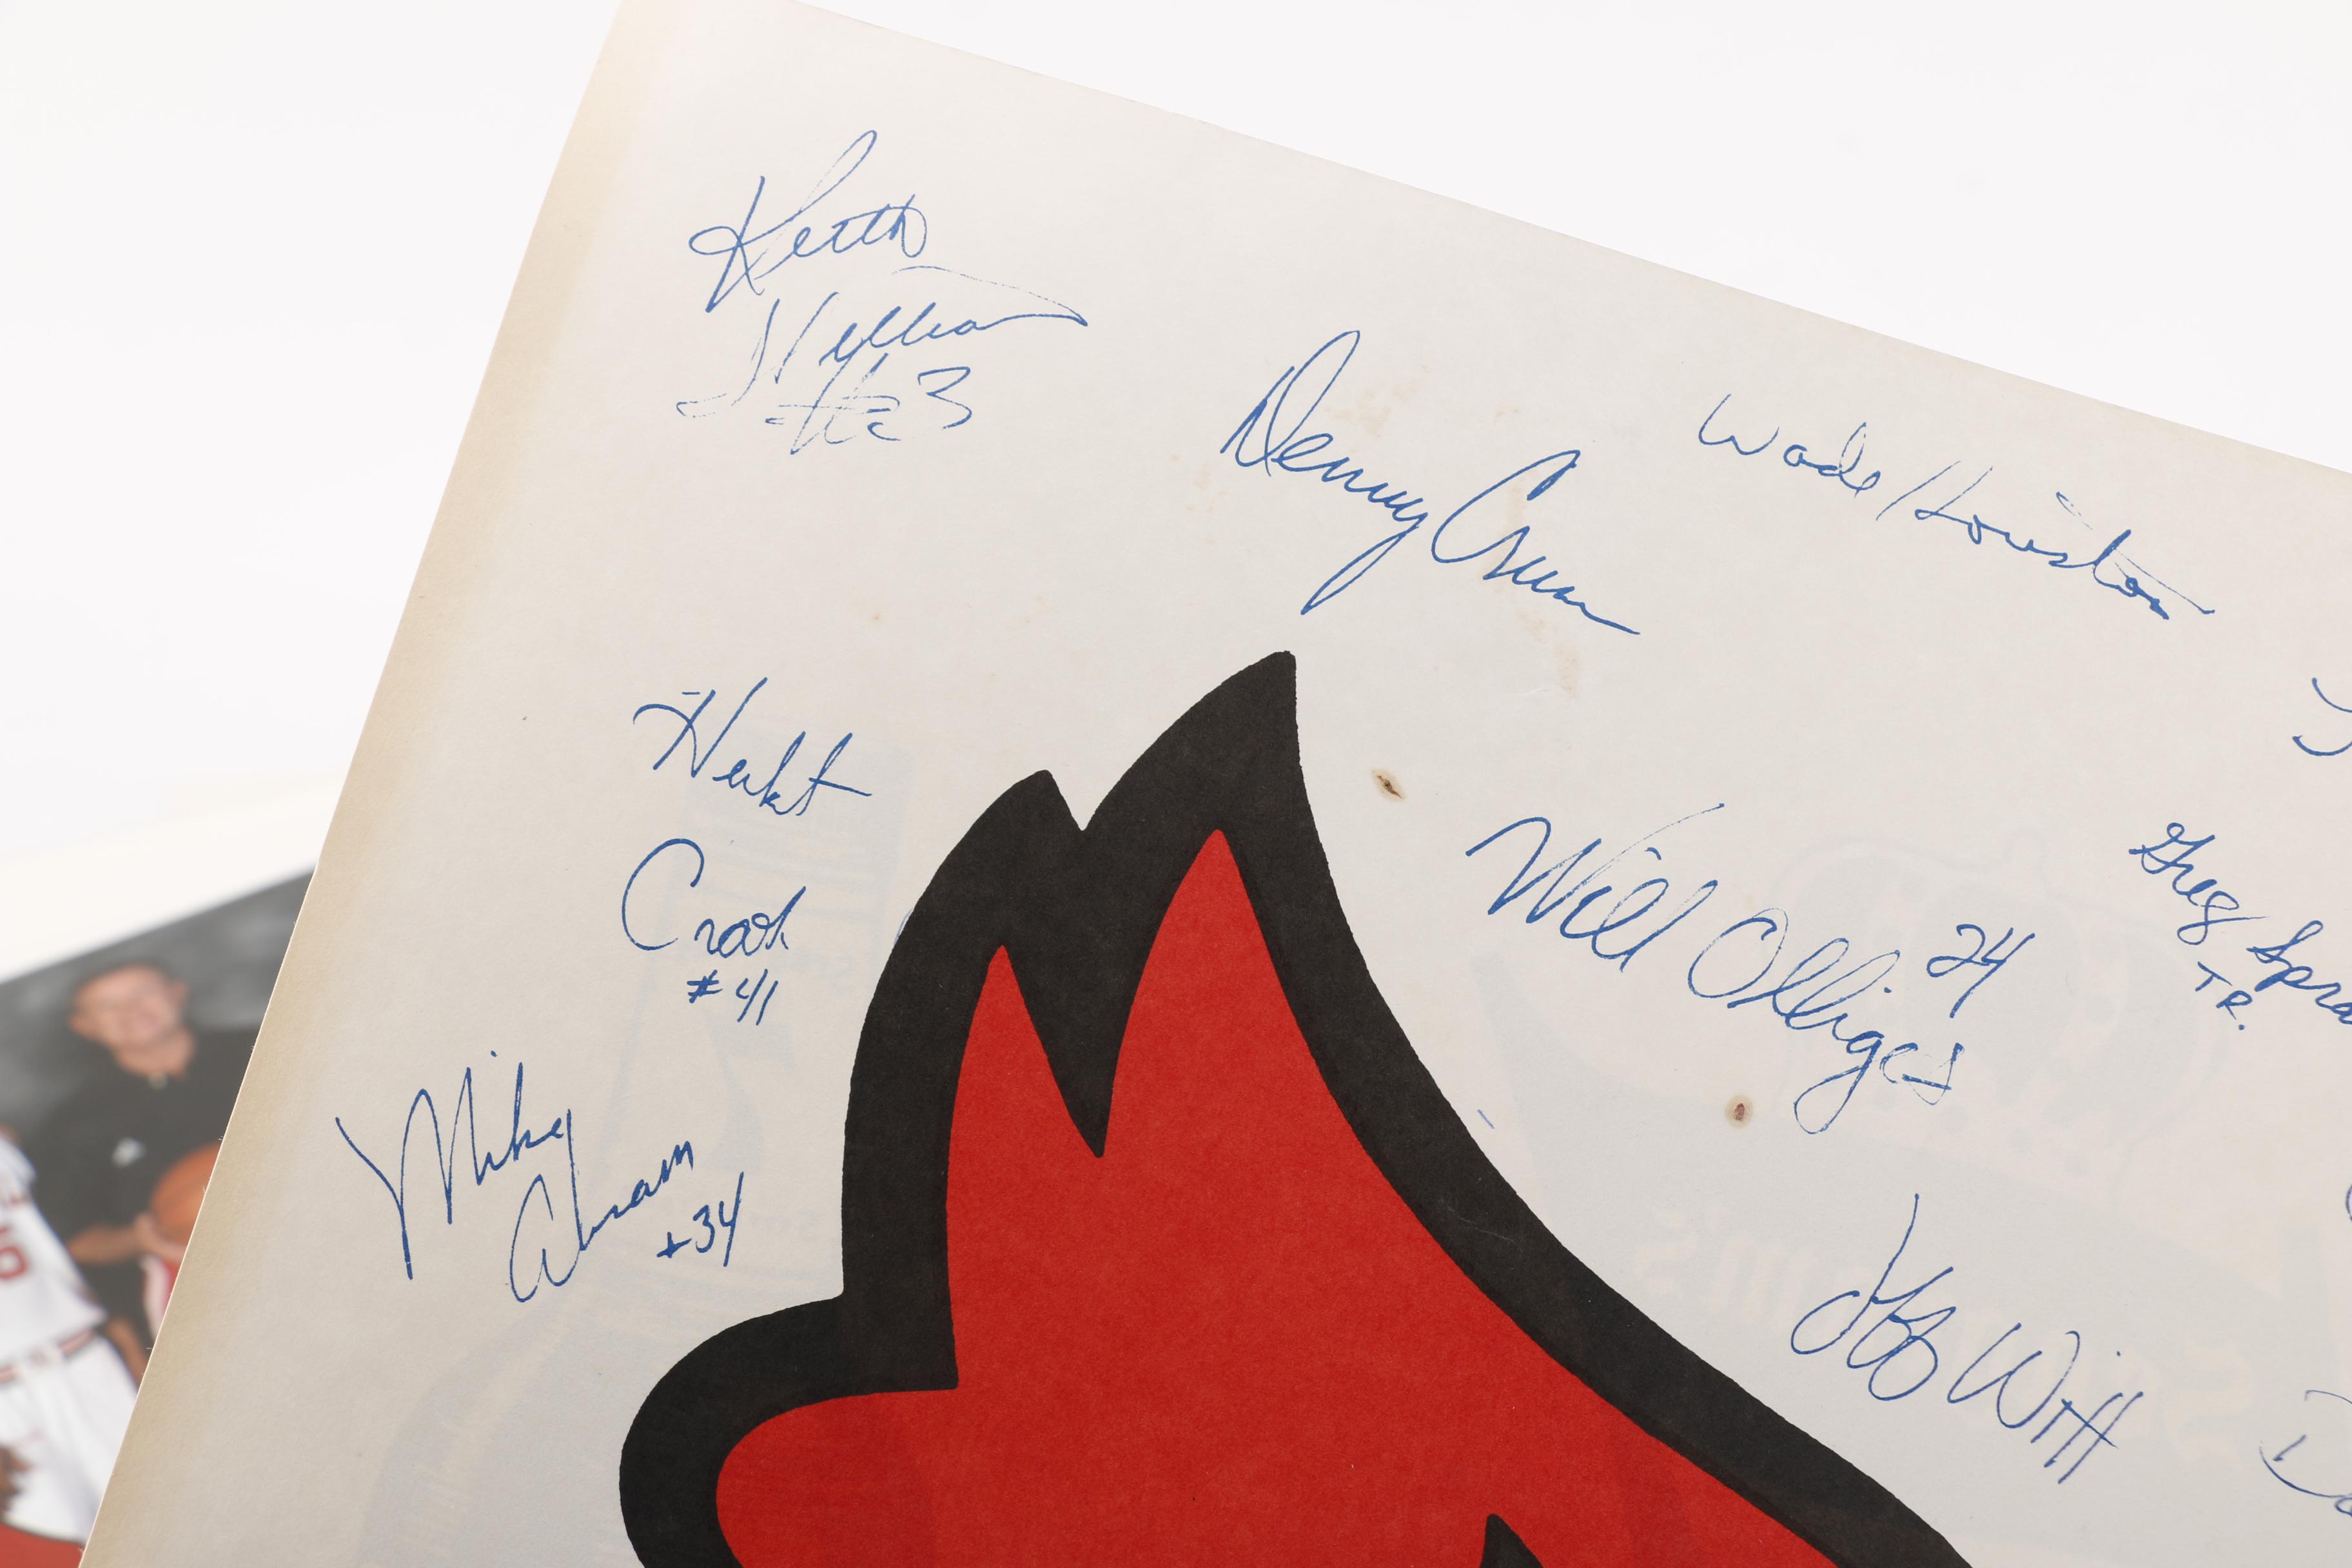 Keith
Williams
#23
Denny Crum
Wade Houston
Herbert
Crook
#41
Will Olliges
24
Greg
TR.
Mike
Abram
#34
Witt